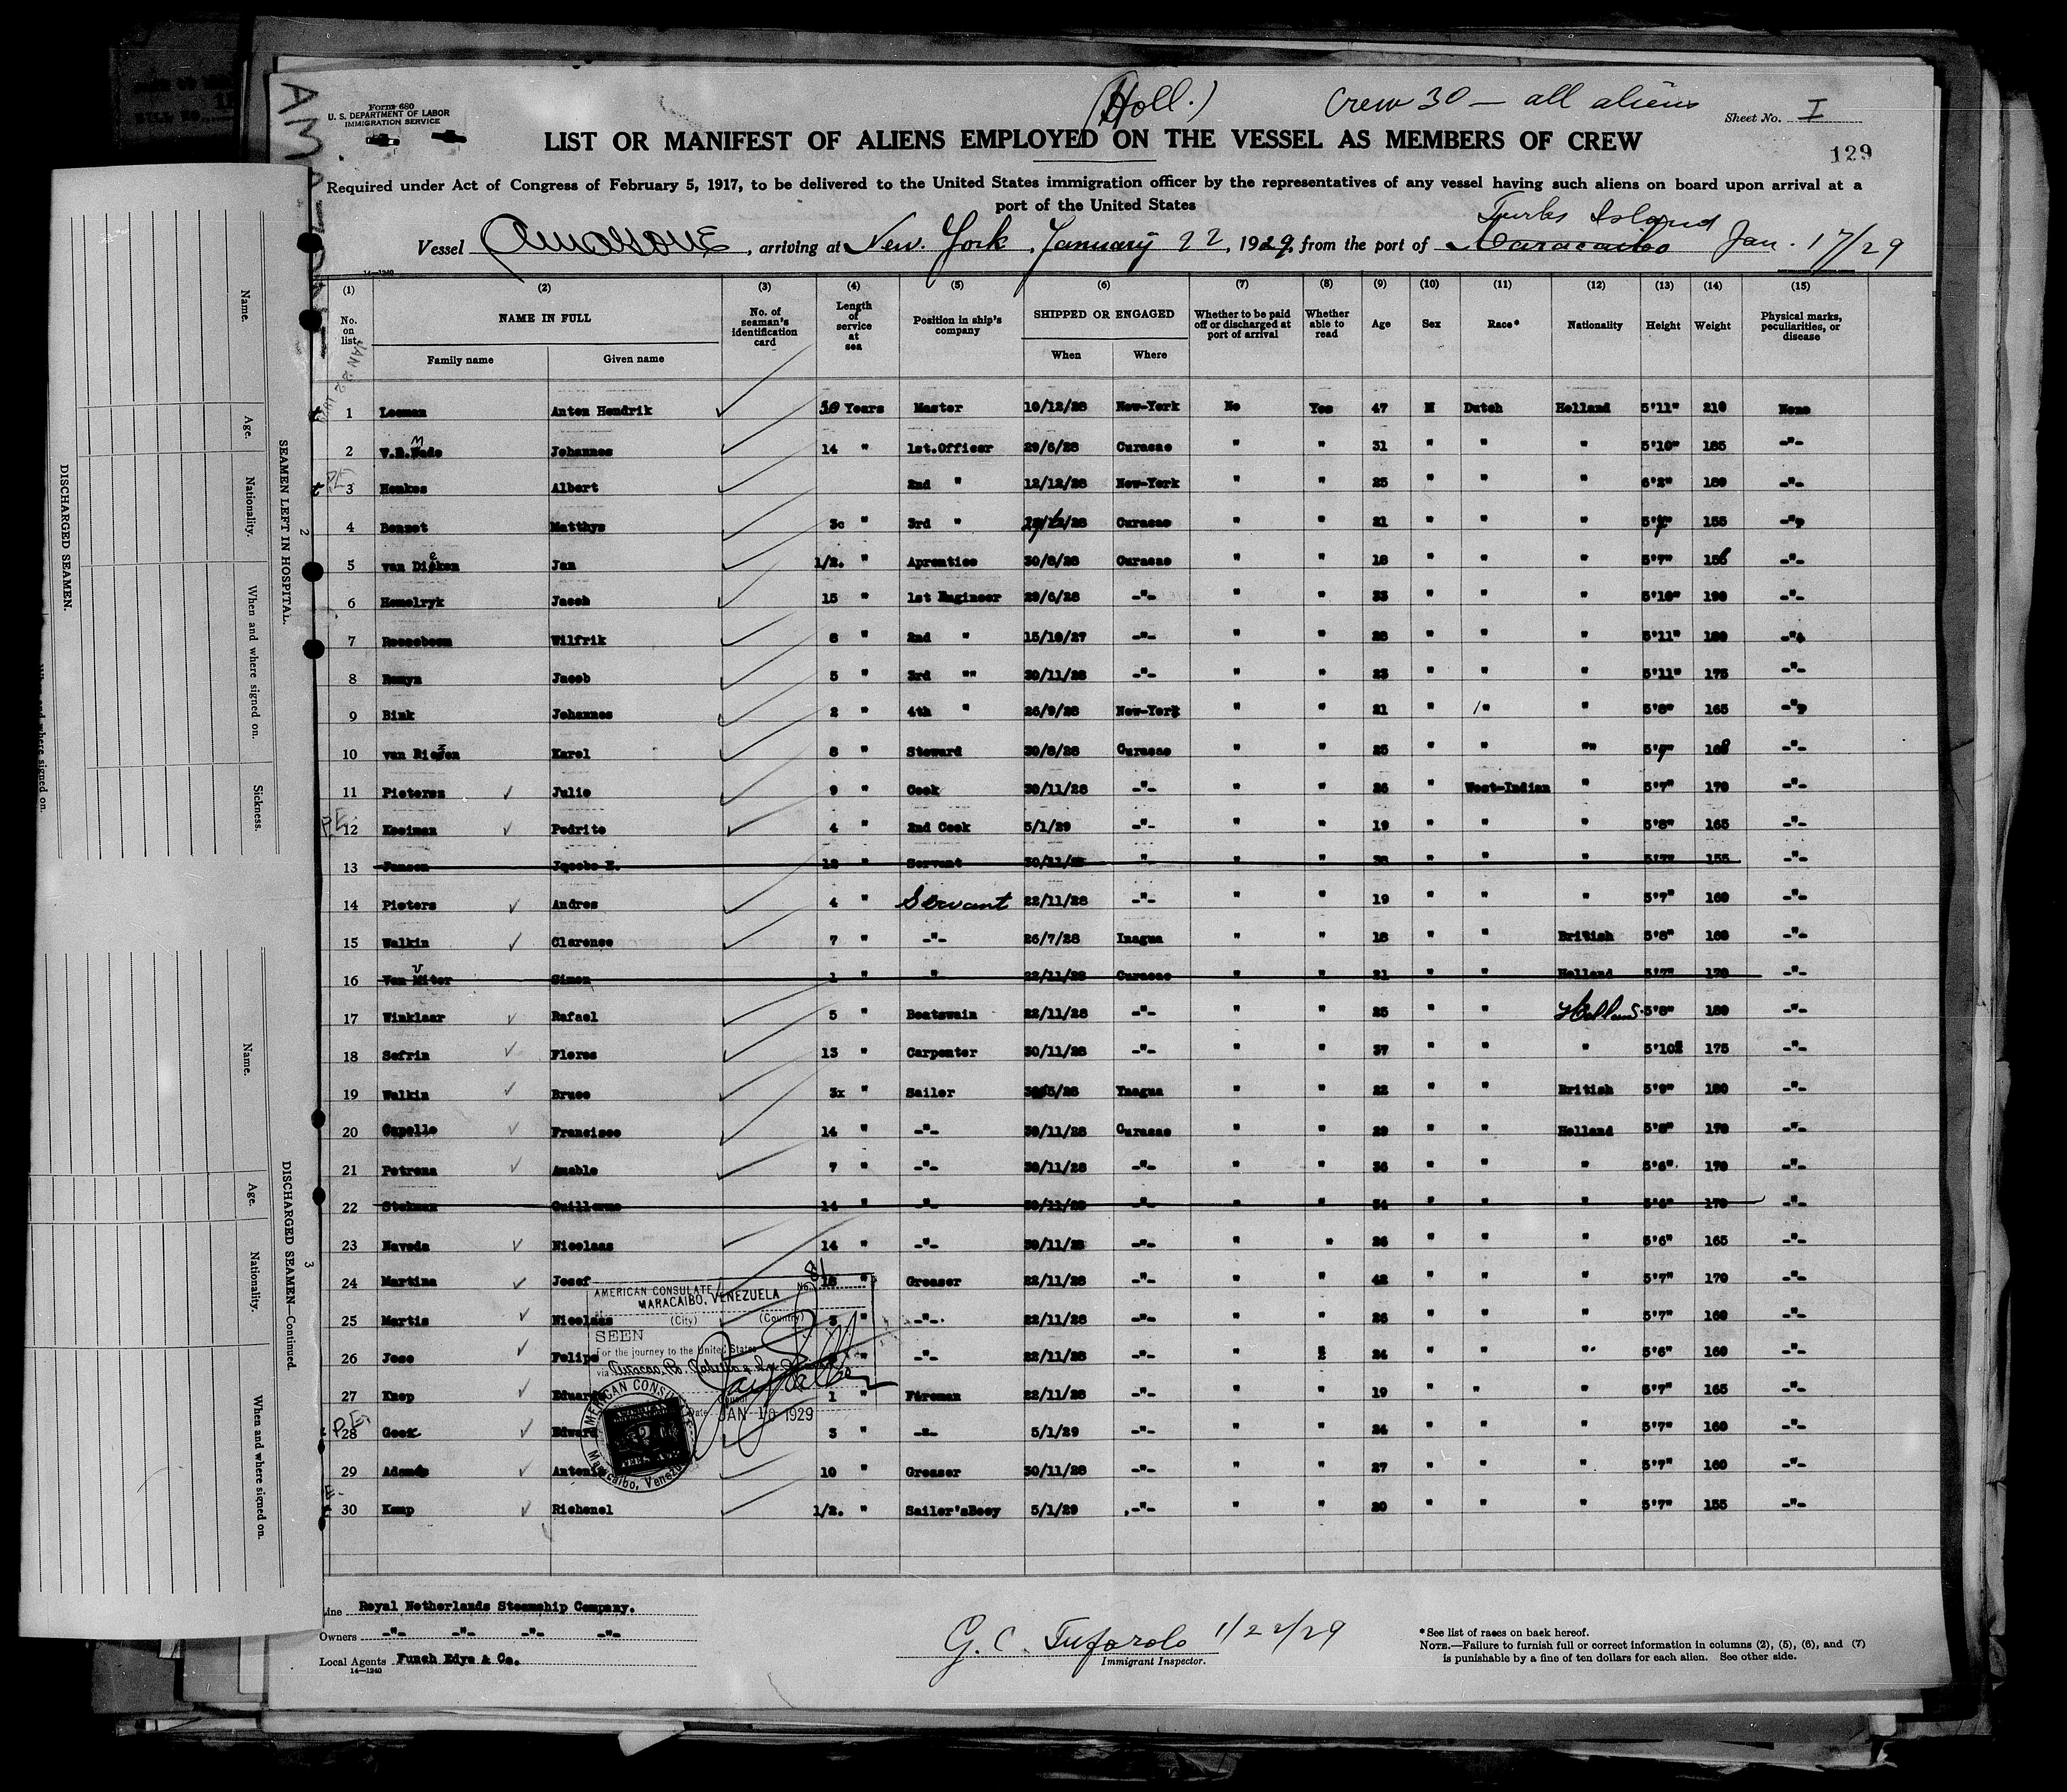 (Holl.)
Crew 30 — all aliens
Form 680
U. S. DEPARTMENT OF LABOR
IMMIGRATION SERVICE
Sheet No. I
LIST OR MANIFEST OF ALIENS EMPLOYED ON THE VESSEL AS MEMBERS OF CREW
129
Required under Act of Congress of February 5, 1917, to be delivered to the United States immigration officer by the representatives of any vessel having such aliens on board upon arrival at a
port of the United States
Turks Island
Vessel Amazone, arriving at New York, January 22, 1929, from the port of Maracaibo Jan. 17/29
14—1240
(1) (2) (3) (4) (5) (6) (7) (8) (9) (10) (11) (12) (13) (14) (15)
No. on list NAME IN FULL Family name Given name No. of seaman's identification card Length of service at sea Position in ship's company SHIPPED OR ENGAGED When Where Whether to be paid off or discharged at port of arrival Whether able to read Age Sex Race* Nationality Height Weight Physical marks, peculiarities, or disease
1 Leeman Anton Hendrik Years Master 10/12/28 New-York No Yes 47 M Dutch Holland 5'11" 210 None
2 Johannes 14 " 1st.Officer 29/6/28 Curacao " " 31 " " " 5'10" 185 -"-
3 Henkes Albert 2nd " 12/12/28 New-York " " 25 " " " 6'2" 180 -"-
4 Matthys 3c " 3rd " Curacao " " 21 " " " 155
5 van Dieken Jan 1/2. " Aprentice 30/8/28 Curacao " " 18 " " " 5'7" -"-
6 Hemelryk Jacob 15 " 1st Engineer 29/6/28 -"- " " 33 " " " 5'10" 190 -"-
7 Rooseboom Wilfrik 8 " 2nd " 15/10/27 -"- " " 28 " " " 5'11" 180
8 Romyn Jacob 5 " 3rd "" 30/11/28 -"- " " 23 " " " 5'11" 175 -"-
9 Bink Johannes 2 " 4th " 26/9/28 New-York " " 21 " " " 5'8" 165
10 Karel 8 " Steward 30/8/28 Curacao " " 25 " " "" -"-
11 Pietersz Julio 9 " Cook 30/11/28 -"- " " 26 " West-Indian " 5'7" 170 -"-
12 Kooiman Pedrito 4 " 2nd Cook 5/1/29 -"- " " 19 " " " 5'8" 165 -"-
13 Jansen Jacobo E. 12 " Servant 30/11/28 " " " 38 " " " 5'7" 155 -"-
14 Pieters Andres 4 " Servant 22/11/28 -"- " " 19 " " " 5'7" 160 -"-
15 Walkin Clarence 7 " -"- 26/7/28 Inagua " " 18 " " British 5'8" 160 -"-
16 Van Uiter Simon 1 " " 22/11/28 Curacao " " 21 " " Holland 5'7" 170 -"-
17 Winklaar Rafael 5 " Boatswain 22/11/28 -"- " " 25 " " Holland 5'8" 180 -"-
18 Sefrin Flores 13 " Carpenter 30/11/28 -"- " " 37 " " " 175 -"-
19 Walkin Bruce 3x " Sailer Ynagua " " 22 " " British 5'9" 180 -"-
20 Capello Francisco 14 " -"- 30/11/28 Curacao " " 29 " " Holland 5'8" 170 -"-
21 Petrona Amable 7 " -"- 30/11/28 -"- " " 36 " " " 5'6" 170 -"-
22 Stekman Guillermo 14 " -"- 30/11/28 -"- " " 34 " " " 5'6" 170 -"-
23 Naveda Nicolaas 14 " -"- 30/11/28 -"- " " 26 " " " 5'6" 165 -"-
24 Martina Josef 18 " Greaser 22/11/28 -"- " " 42 " " " 5'7" 170 -"-
25 Martis Nicolaas 3 " -"- 22/11/28 -"- " " 26 " " " 5'7" 160 -"-
26 Jose Felipe -"- 22/11/28 -"- " 24 " " " 5'6" 160 -"-
27 Knop Eduardo 1 " Fireman 22/11/28 -"- " " 19 " " " 5'7" 165 -"-
28 Edward 3 " -"- 5/1/29 -"- " " 24 " " " 5'7" 160 -"-
29 Antonio 10 " Greaser 30/11/28 -"- " " 27 " " " 5'7" 160 -"-
30 Kemp Richenel 1/2. " Sailer'sBoey 5/1/29 -"- " " 20 " " " 5'7" 155 -"-
AMERICAN CONSULATE No. 81
MARACAIBO, VENEZUELA
(City) (Country)
SEEN
For the journey to the United States
via Curacao, P. Cabello &
Date JAN 10 1929
AMERICAN CONSULATE
Maracaibo, Venezuela
Line Royal Netherlands Steamship Company.
Owners -"- -"- -"- -"-
Local Agents Funch Edye & Co.
14—1240
G. C. Tufarolo 1/22/29
Immigrant Inspector.
*See list of races on back hereof.
NOTE.—Failure to furnish full or correct information in columns (2), (5), (6), and (7)
is punishable by a fine of ten dollars for each alien. See other side.
JAN 22 1929
SEAMEN LEFT IN HOSPITAL.
2
Name.
Age.
Nationality.
When and where signed on.
Sickness.
DISCHARGED SEAMEN.
DISCHARGED SEAMEN—Continued.
3
Name.
Age.
Nationality.
When and where signed on.